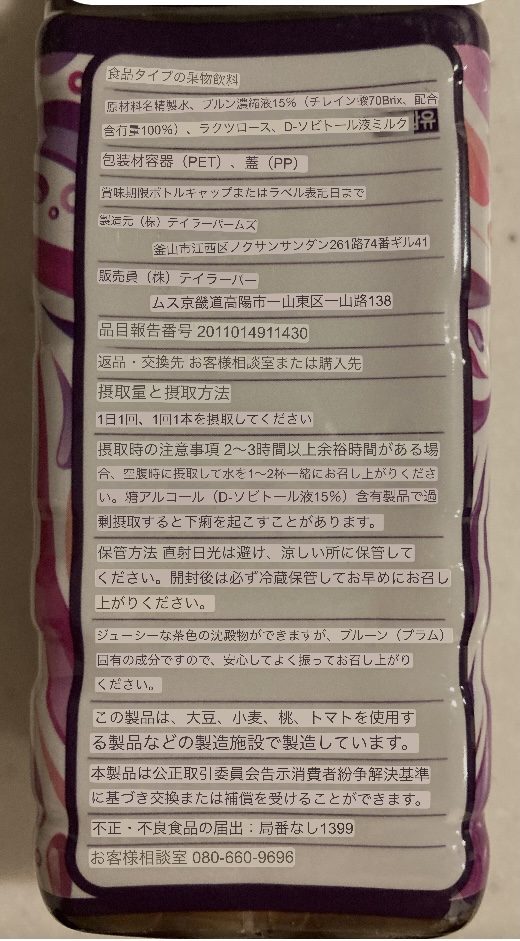 食品タイプの果物飲料
原材料名精製水、プルン濃縮液15%（チレイン液70Brix、配合
含有量100%）、ラクツロース、D-ソビトール液ミルク 유
包装材容器（PET）、蓋（PP）
賞味期限ボトルキャップまたはラベル表記日まで
製造元（株）テイラーパームズ
釜山市江西区ノクサンサンダン261路74番ギル41
販売員（株）テイラーパー
ムス京畿道高陽市一山東区一山路138
品目報告番号 2011014911430
返品・交換先 お客様相談室または購入先
摂取量と摂取方法
1日1回、1回1本を摂取してください
摂取時の注意事項 2〜3時間以上余裕時間がある場
合、空腹時に摂取して水を1〜2杯一緒にお召し上がりくださ
い。糖アルコール（D-ソビトール液15%）含有製品で過
剰摂取すると下痢を起こすことがあります。
保管方法 直射日光は避け、涼しい所に保管して
ください。開封後は必ず冷蔵保管してお早めにお召し
上がりください。
ジューシーな茶色の沈殿物ができますが、プルーン（プラム）
固有の成分ですので、安心してよく振ってお召し上がり
ください。
この製品は、大豆、小麦、桃、トマトを使用す
る製品などの製造施設で製造しています。
本製品は公正取引委員会告示消費者紛争解決基準
に基づき交換または補償を受けることができます。
不正・不良食品の届出：局番なし1399
お客様相談室 080-660-9696